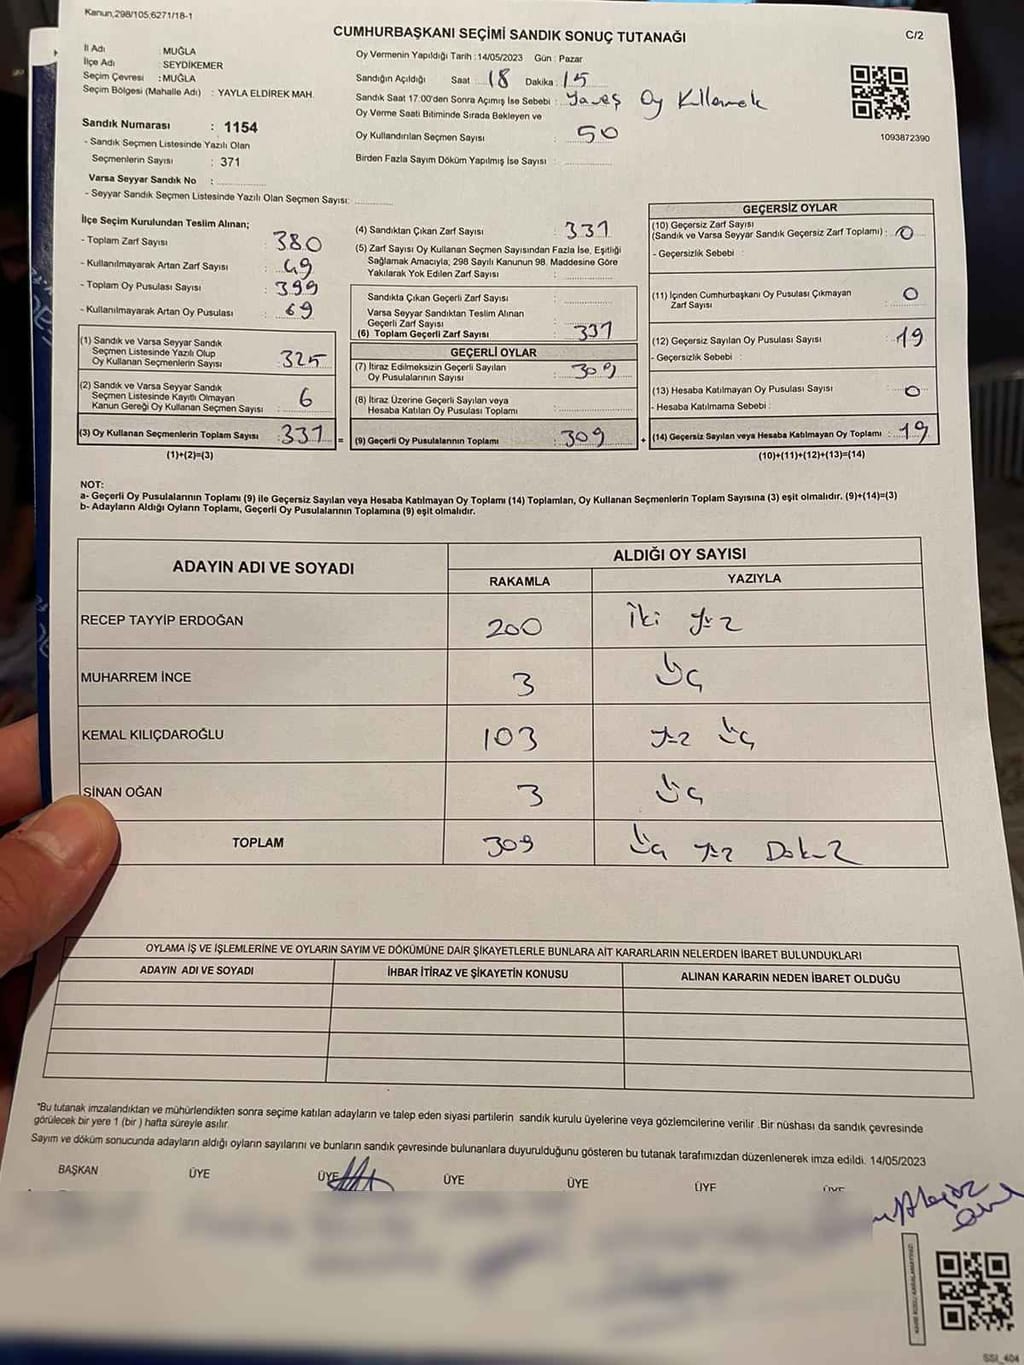 Kanun,298/105,6271/18-1
CUMHURBAŞKANI SEÇİMİ SANDIK SONUÇ TUTANAĞI
C/2
İl Adı : MUĞLA
İlçe Adı : SEYDİKEMER
Seçim Çevresi : MUĞLA
Seçim Bölgesi (Mahalle Adı) : YAYLA ELDİREK MAH.
Sandık Numarası : 1154
- Sandık Seçmen Listesinde Yazılı Olan
Seçmenlerin Sayısı : 371
Varsa Seyyar Sandık No :
- Seyyar Sandık Seçmen Listesinde Yazılı Olan Seçmen Sayısı:
Oy Vermenin Yapıldığı Tarih :14/05/2023 Gün : Pazar
Sandığın Açıldığı Saat 18 Dakika : 15
Sandık Saat 17.00'den Sonra Açımış İse Sebebi : Yavaş Oy Kullanmak
Oy Verme Saati Bitiminde Sırada Bekleyen ve
Oy Kullandırılan Seçmen Sayısı : 50
Birden Fazla Sayım Döküm Yapılmış İse Sayısı :
1093872390
İlçe Seçim Kurulundan Teslim Alınan;
- Toplam Zarf Sayısı : 380
- Kullanılmayarak Artan Zarf Sayısı : 49
- Toplam Oy Pusulası Sayısı : 399
- Kullanılmayarak Artan Oy Pusulası : 69
(1) Sandık ve Varsa Seyyar Sandık
Seçmen Listesinde Yazılı Olup
Oy Kullanan Seçmenlerin Sayısı : 325
(2) Sandık ve Varsa Seyyar Sandık
Seçmen Listesinde Kayıtlı Olmayan
Kanun Gereği Oy Kullanan Seçmen Sayısı : 6
(3) Oy Kullanan Seçmenlerin Toplam Sayısı : 331 =
(1)+(2)=(3)
(4) Sandıktan Çıkan Zarf Sayısı : 331
(5) Zarf Sayısı Oy Kullanan Seçmen Sayısından Fazla İse, Eşitliği
Sağlamak Amacıyla; 298 Sayılı Kanunun 98. Maddesine Göre
Yakılarak Yok Edilen Zarf Sayısı :
Sandıkta Çıkan Geçerli Zarf Sayısı :
Varsa Seyyar Sandıktan Teslim Alınan
Geçerli Zarf Sayısı :
(6) Toplam Geçerli Zarf Sayısı : 331
GEÇERLİ OYLAR
(7) İtiraz Edilmeksizin Geçerli Sayılan
Oy Pusulalarının Sayısı : 309
(8) İtiraz Üzerine Geçerli Sayılan veya
Hesaba Katılan Oy Pusulası Toplamı :
(9) Geçerli Oy Pusulalarının Toplamı : 309 +
GEÇERSİZ OYLAR
(10) Geçersiz Zarf Sayısı
(Sandık ve Varsa Seyyar Sandık Geçersiz Zarf Toplamı) : 0
- Geçersizlik Sebebi :
(11) İçinden Cumhurbaşkanı Oy Pusulası Çıkmayan
Zarf Sayısı : 0
(12) Geçersiz Sayılan Oy Pusulası Sayısı : 19
- Geçersizlik Sebebi :
(13) Hesaba Katılmayan Oy Pusulası Sayısı : 0
- Hesaba Katılmama Sebebi :
(14) Geçersiz Sayılan veya Hesaba Katılmayan Oy Toplamı : 19
(10)+(11)+(12)+(13)=(14)
NOT:
a- Geçerli Oy Pusulalarının Toplamı (9) ile Geçersiz Sayılan veya Hesaba Katılmayan Oy Toplamı (14) Toplamları, Oy Kullanan Seçmenlerin Toplam Sayısına (3) eşit olmalıdır. (9)+(14)=(3)
b- Adayların Aldığı Oyların Toplamı, Geçerli Oy Pusulalarının Toplamına (9) eşit olmalıdır.
ADAYIN ADI VE SOYADI
ALDIĞI OY SAYISI
RAKAMLA YAZIYLA
RECEP TAYYİP ERDOĞAN 200 İki yüz
MUHARREM İNCE 3 Üç
KEMAL KILIÇDAROĞLU 103 yüz üç
SİNAN OĞAN 3 Üç
TOPLAM 309 Üç yüz Dokuz
OYLAMA İŞ VE İŞLEMLERİNE VE OYLARIN SAYIM VE DÖKÜMÜNE DAİR ŞİKAYETLERLE BUNLARA AİT KARARLARIN NELERDEN İBARET BULUNDUKLARI
ADAYIN ADI VE SOYADI İHBAR İTİRAZ VE ŞİKAYETİN KONUSU ALINAN KARARIN NEDEN İBARET OLDUĞU
*Bu tutanak imzalandıktan ve mühürlendikten sonra seçime katılan adayların ve talep eden siyasi partilerin sandık kurulu üyelerine veya gözlemcilerine verilir .Bir nüshası da sandık çevresinde
görülecek bir yere 1 (bir ) hafta süreyle asılır.
Sayım ve döküm sonucunda adayların aldığı oyların sayılarını ve bunların sandık çevresinde bulunanlara duyurulduğunu gösteren bu tutanak tarafımızdan düzenlenerek imza edildi. 14/05/2023
BAŞKAN ÜYE ÜYE ÜYE ÜYE ÜYE ÜYE
SSI_404